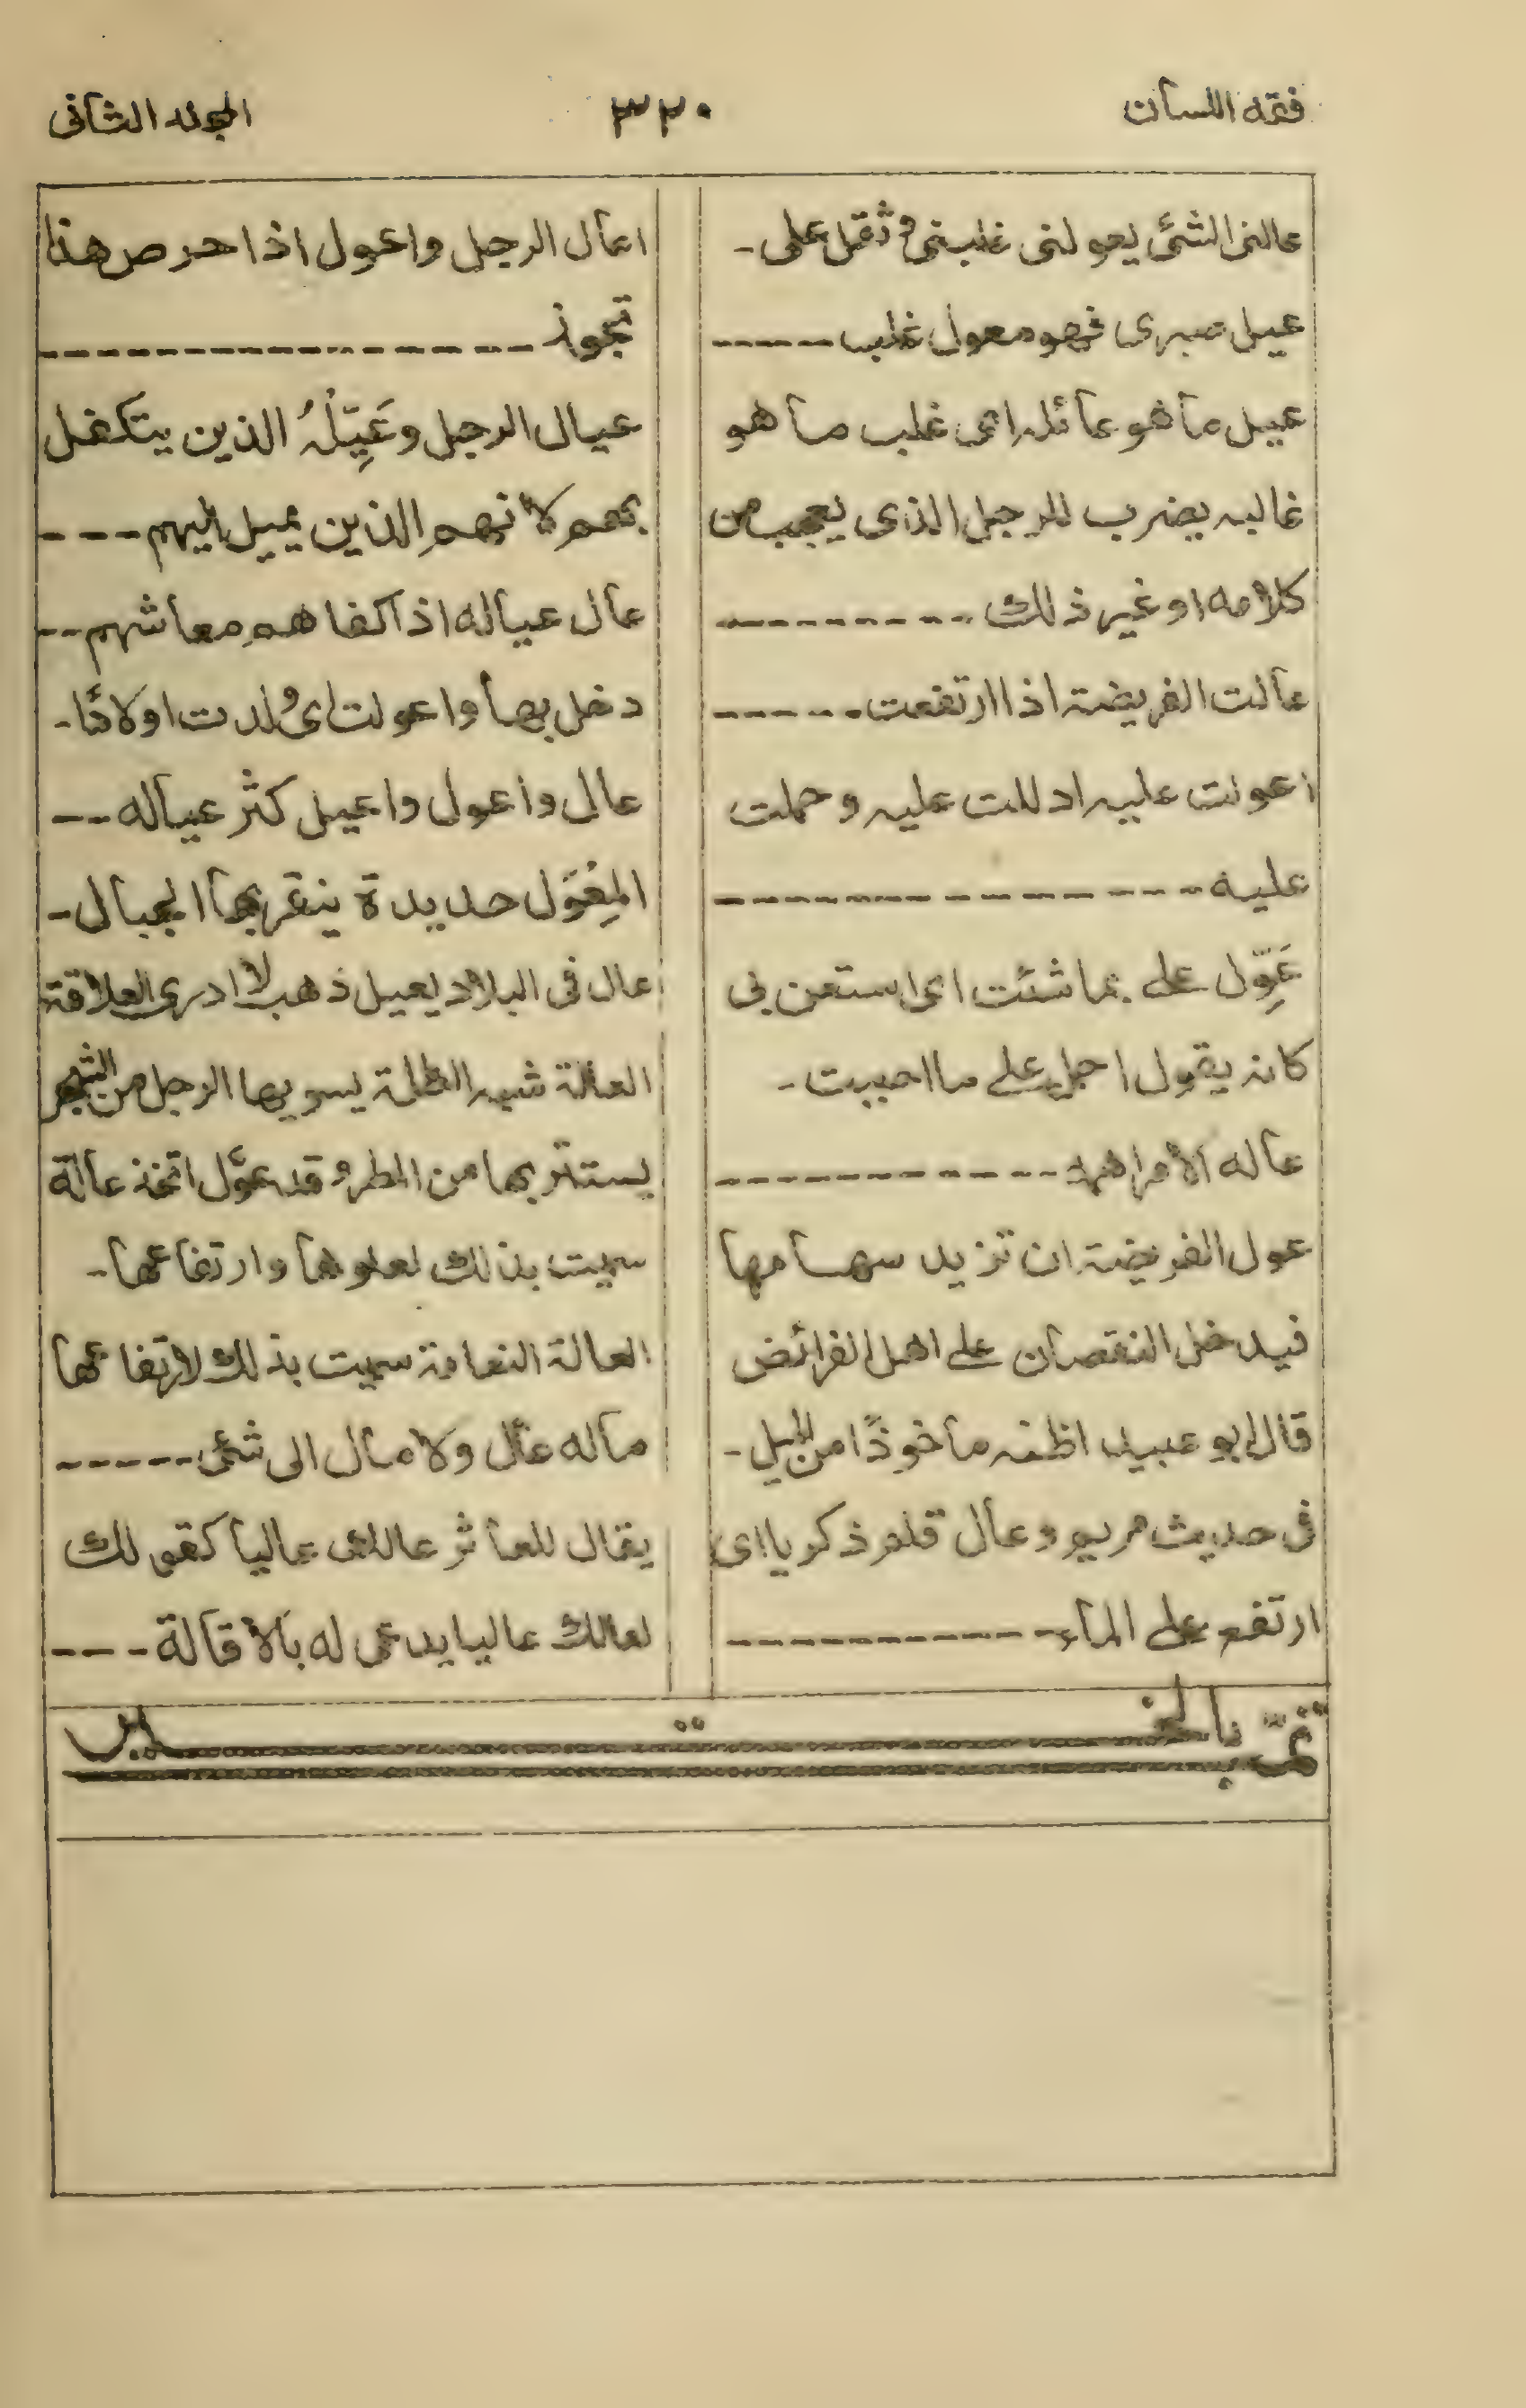 فقه اللسان
٣٣٠
الجزء الثانى
عالنى الشئ يعولنى غلبنى و ثقل على -
عيل صبرى فهو معول غلب
عيل ما هو عائله اى غلب ما هو
غالبه يضرب للرجل الذى يعجب من
كلامه او غير ذلك
عالت الفريضة اذا ارتفعت
اعولت عليه ادللت عليه و حملت
عليه
عَوِّل على بما شئت اى استعن بى
كانه يقول احمل على ما احببت -
عاله الامر اهمه
عول الفريضة ان تزيد سهامها
فيدخل النقصان على اهل الفرائض
قال ابو عبيد اظنه ماخوذًا من الميل -
فى حديث مريم و عال قلم ذكريا اى
ارتفع على الماء
اعال الرجل و اعول اذا حرص هذا
تجوز
عيال الرجل و عَيِّلُهُ الذين يتكفل
بهم لانهم الذين يميل اليهم
عال عياله اذا كفاهم معاشهم --
دخل بها و اعولت اى وُلدت اولادًا -
عال و اعول و اعيل كثر عياله --
المِعْوَل حديدة ينقر بها الجبال -
عال فى البلاد يعيل ذهب لا ادرى العلاقة
العالة شبه الظلة يسويها الرجل من الشجر
يستتر بها من المطر و قد عوّل اتخذ عالة
سميت بذلك لعلوها و ارتفاعها -
العالة النعامة سميت بذلك لارتفاعها
ماله عال و لا مال الى شئ
يقال للعاثر عالك عاليا كقولك
لعالك عاليا يدعى له بالاقالة
تمت بالخير